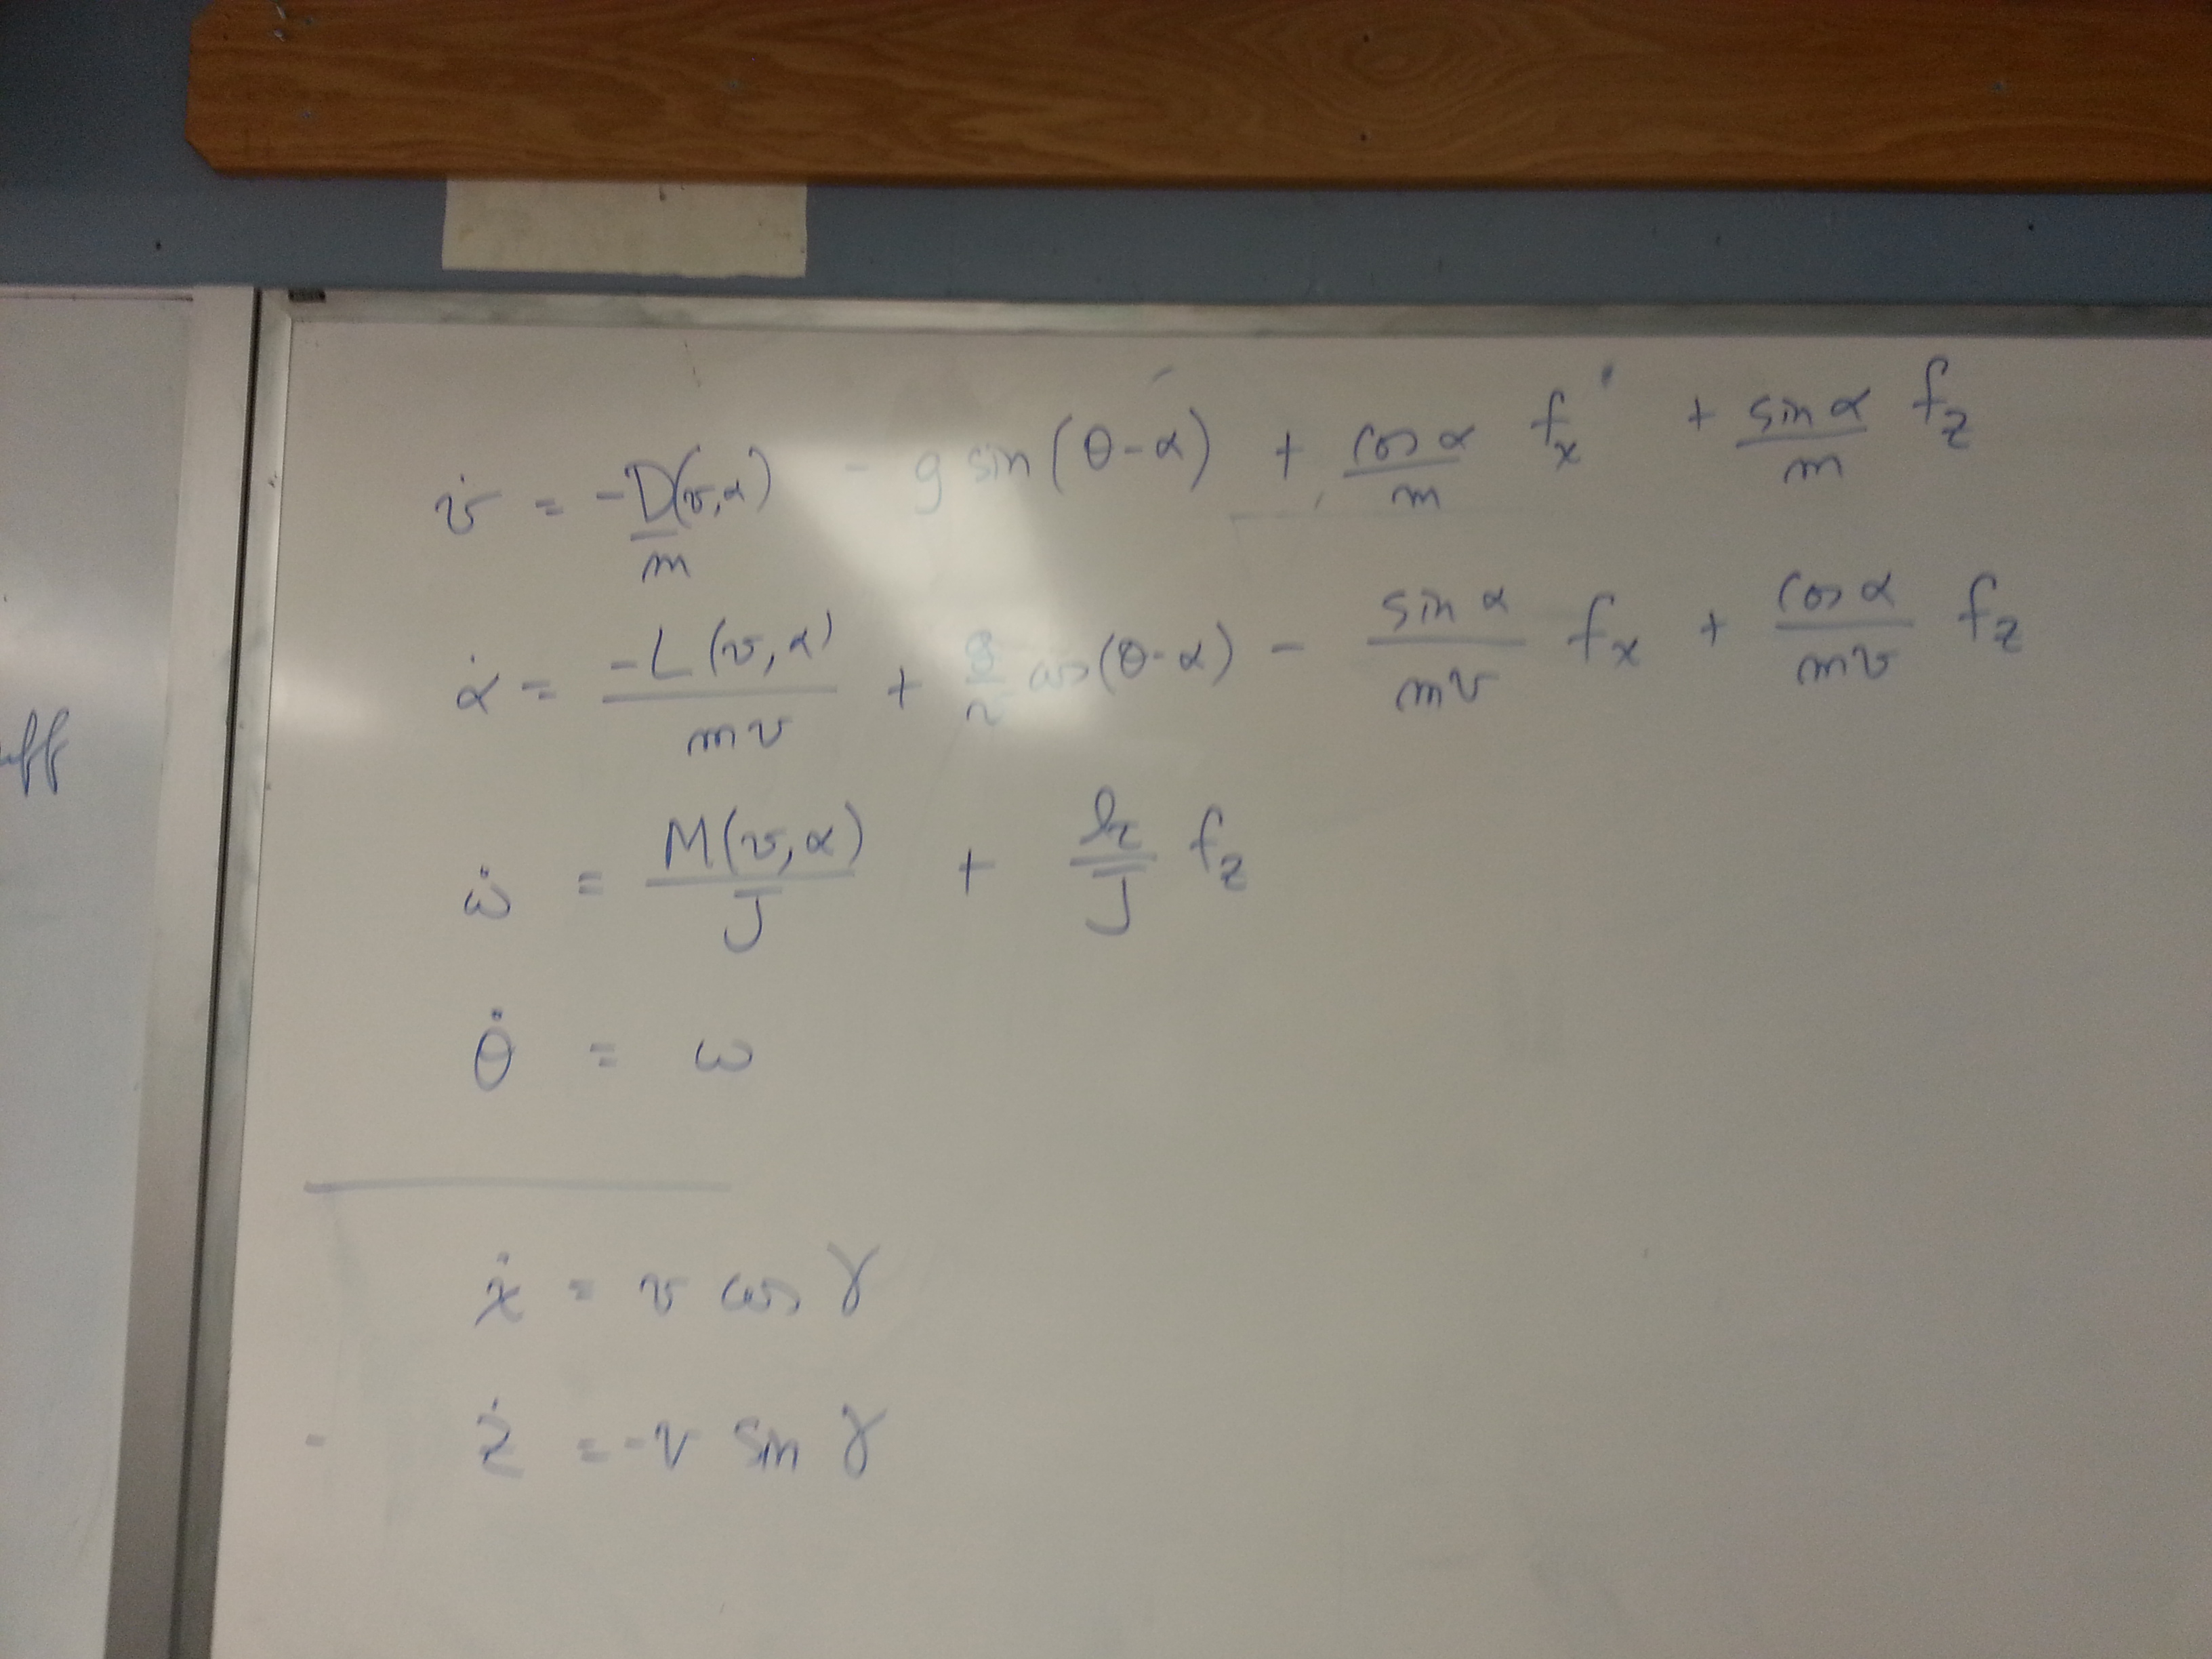 v̇ = -D(v,α)/m - g sin(θ-α) + cos α/m fₓ + sin α/m f_z
α̇ = -L(v,α)/mv + g/v cos(θ-α) - sin α/mv fₓ + cos α/mv f_z
ω̇ = M(v,α)/J + /J f_z
θ̇ = ω
ẋ = v cos γ
ż = -v sin γ